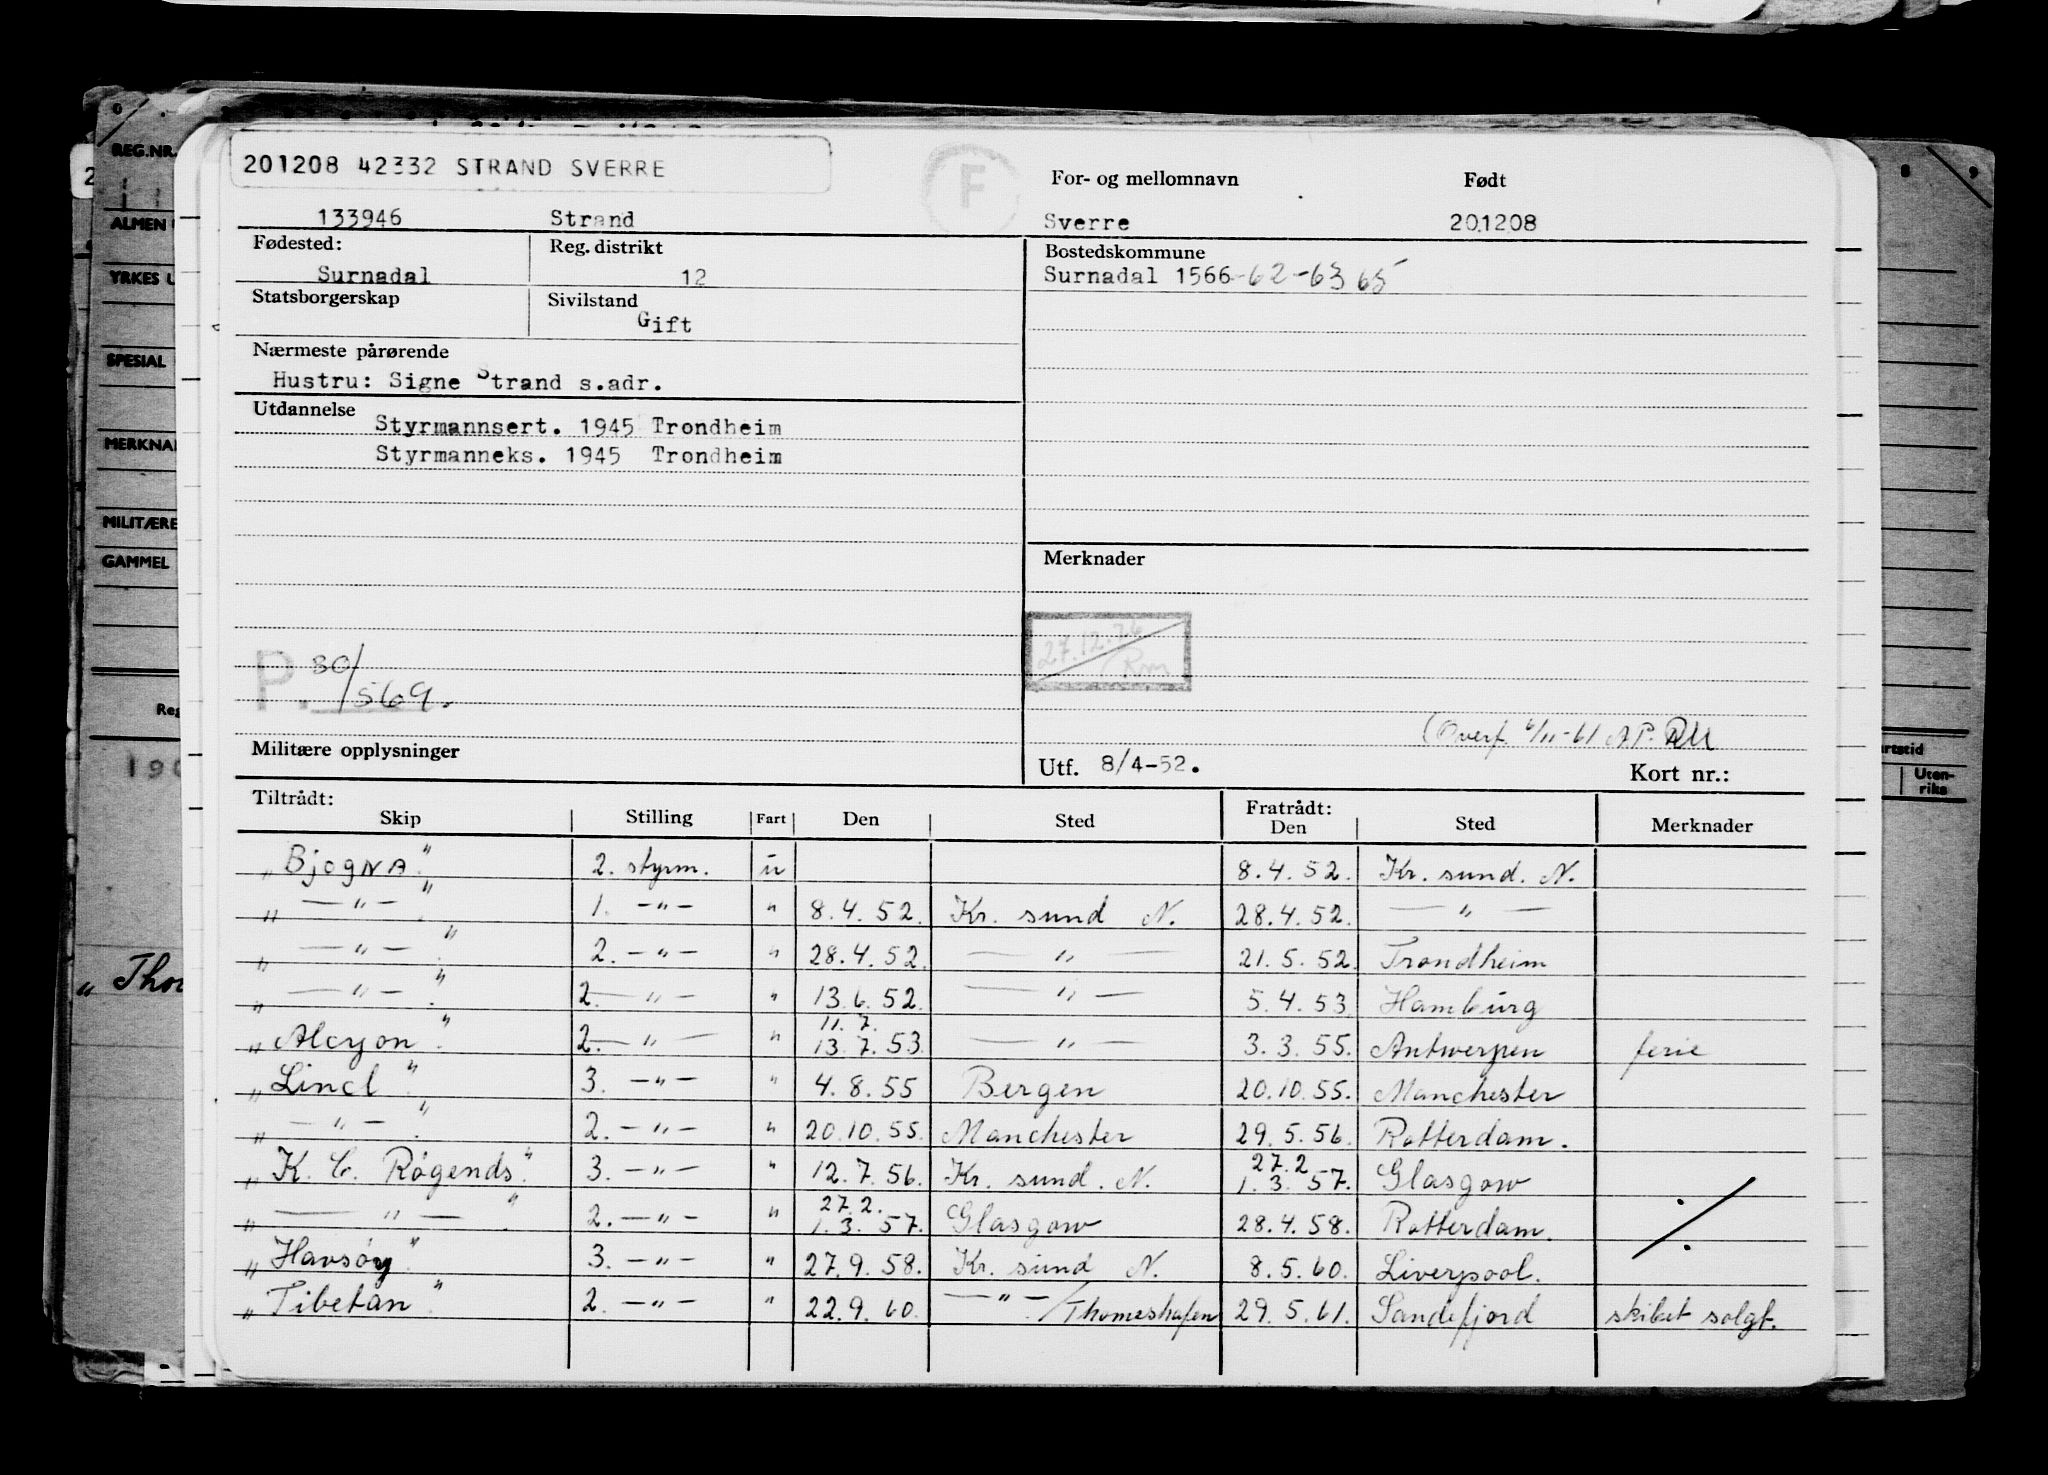 REG.NR.
ALMEN
YRKES U
SPESIAL
MERKNA
MILITÆRE
GAMMEL
Reg
190
„ Tho
201208 42332 STRAND SVERRE
F
For- og mellomnavn Født
133946 Strand Sverre 201208
Fødested: Reg. distrikt Bostedskommune
Surnadal 12 Surnadal 1566-62-63 65
Statsborgerskap Sivilstand
Gift
Nærmeste pårørende
Hustru: Signe Strand s.adr.
Utdannelse
Styrmannsert. 1945 Trondheim
Styrmanneks. 1945 Trondheim
Merknader
27.12.76
P. 30/569.
(Overf. 6/11-61 AP.
Militære opplysninger Utf. 8/4-52. Kort nr.:
Tiltrådt: Fratrådt:
Skip Stilling Fart Den Sted Den Sted Merknader
„Bjogna" 2. styrm. u 8.4.52. Kr. sund. N.
„ — " — " 1. — " — " 8.4.52. Kr. sund N. 28.4.52. — " —
„ — " — " 2. — " — " 28.4.52. — " — 21.5.52. Trondheim
„ — " — " 2. — " — " 13.6.52. — " — 5.4.53 Hamburg
11.7.
„Alcyon" 2. — " — " 13.7.53. — " — 3.3.55. Antwerpen ferie
„Lincl" 3. — " — " 4.8.55 Bergen 20.10.55. Manchester
„ — " — " 2. — " — " 20.10.55. Manchester 29.5.56. Rotterdam.
27.2
„K. C. Rögends" 3. — " — " 12.7.56. Kr. sund. N. 1.3.57. Glasgow
27.2.
„ — " — " 2. — " — " 1.3.57. Glasgow 28.4.58. Rotterdam.
„Havsöy" 3. — " — " 27.9.58. Kr. sund N. 8.5.60. Liverpool.
„Tibetan" 2. — " — " 22.9.60. — " — /Thomeshafen 29.5.61. Sandefjord skibet solgt.
8 9
artstid
Uten-
riks